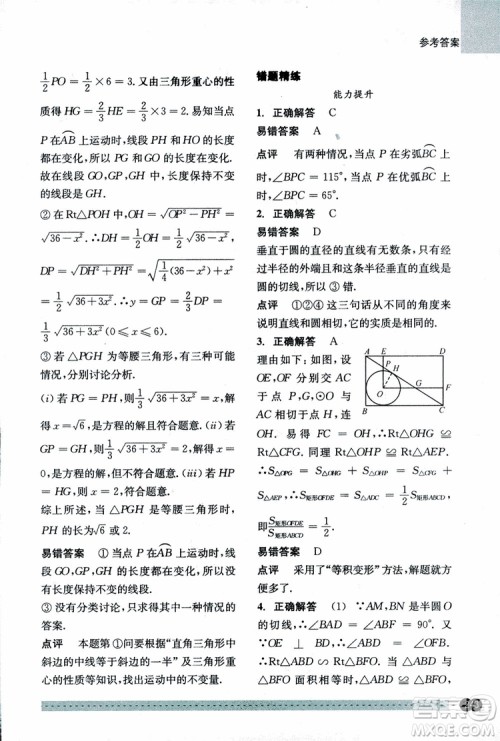 参考答案
$\frac{1}{2}PO=\frac{1}{2}×6=3$. 又由三角形重心的性
质得 $HG=\frac{2}{3}HE=\frac{2}{3}×3=2$. 易知当点
P 在$\overset{\frown}{AB}$上运动时,线段 PH 和 HO 的长度
都在变化,所以 PG 和 GO 的长度都在变化.
故在线段 GO,GP,GH 中,长度保持不变
的线段是 GH.
② 在 Rt△POH 中,$OH=\sqrt{OP^2-PH^2}$
$=\sqrt{36-x^2}$.∴$DH=\frac{1}{2}OH=\frac{1}{2}\sqrt{36-x^2}$,
$DP=\sqrt{DH^2+PH^2}=\sqrt{\frac{1}{4}(36-x^2)+x^2}=$
$\frac{1}{2}\sqrt{36+3x^2}$. ∴ $y=GP=\frac{2}{3}DP=$
$\frac{1}{3}\sqrt{36+3x^2}(0≤x≤6)$.
③ 若 △PGH 为等腰三角形,分三种情况
分别讨论分析.
(i) 若 PG=PH,则有$\frac{1}{3}\sqrt{36+3x^2}=x$,解
得 $x=\sqrt{6}$,是方程的解且符合题意.(ii) 若
GP=GH,则有$\frac{1}{3}\sqrt{36+3x^2}=2$,解得 $x=$
0,是方程的解,但不符合题意.(iii) 若 HP
=HG=2,则有 x=2,符合题意.
综上所述,当 △PGH 是等腰三角形时,
PH 的长为$\sqrt{6}$或 2.
易错答案 ① 当点 P 在$\overset{\frown}{AB}$上运动时,线段
GO,GP,GH 中,无长度不变的线段.
③ 没有分类讨论,或分类后没有写总结的
答案.
点评 本题第①问要根据“直角三角形中
斜边的中线等于斜边的一半”及三角形重心
的性质等知识,找出运动中的不变量.
错题精练
能力提升
1. 正确解答 C
易错答案 A
点评 有两种情况,当点 P 在劣弧$\overset{\frown}{BC}$上
时,∠BPC=115°,当点 P 在优弧$\overset{\frown}{BC}$上
时,∠BPC=65°.
2. 正确解答 C
易错答案 A
垂直于圆的直径的直线有无数条,只有经过
直径的外端且和这条直径垂直的直线是
圆的切线,所以 ③ 错.
点评 ①②④ 这三句话从不同的角度来
说明直线和圆相切,它的实质是相同的.
3. 正确解答 A
理由如下:设
OE,OF 分别交 AC
于点 P,G,⊙O 与
AC 切于点 H,连接
A E D P H O G F B C
OH. 易得 FC=OH. ∴Rt△OHG≌
Rt△CFG. 同理 Rt△OPH≌Rt△APE.
∴$S_{△OPG}=S_{△OHG}+S_{△OPH}=S_{△CFG}+$
$S_{△APE}$. ∴$S_{矩形OFDE}=S_{△ADC}=\frac{1}{2}S_{矩形ABCD}$,
即$\frac{S_{矩形OFDE}}{S_{矩形ABCD}}=\frac{1}{2}$.
易错答案 D
点评 采用了“等积变形”方法,解题就方
便多了.
4. 正确解答 (1) ∵AM,BN 是半圆 O
的切线,∴∠BAD=∠ABF=90°. 又
∵ OE ⊥ BD, ∴ ∠BAD =